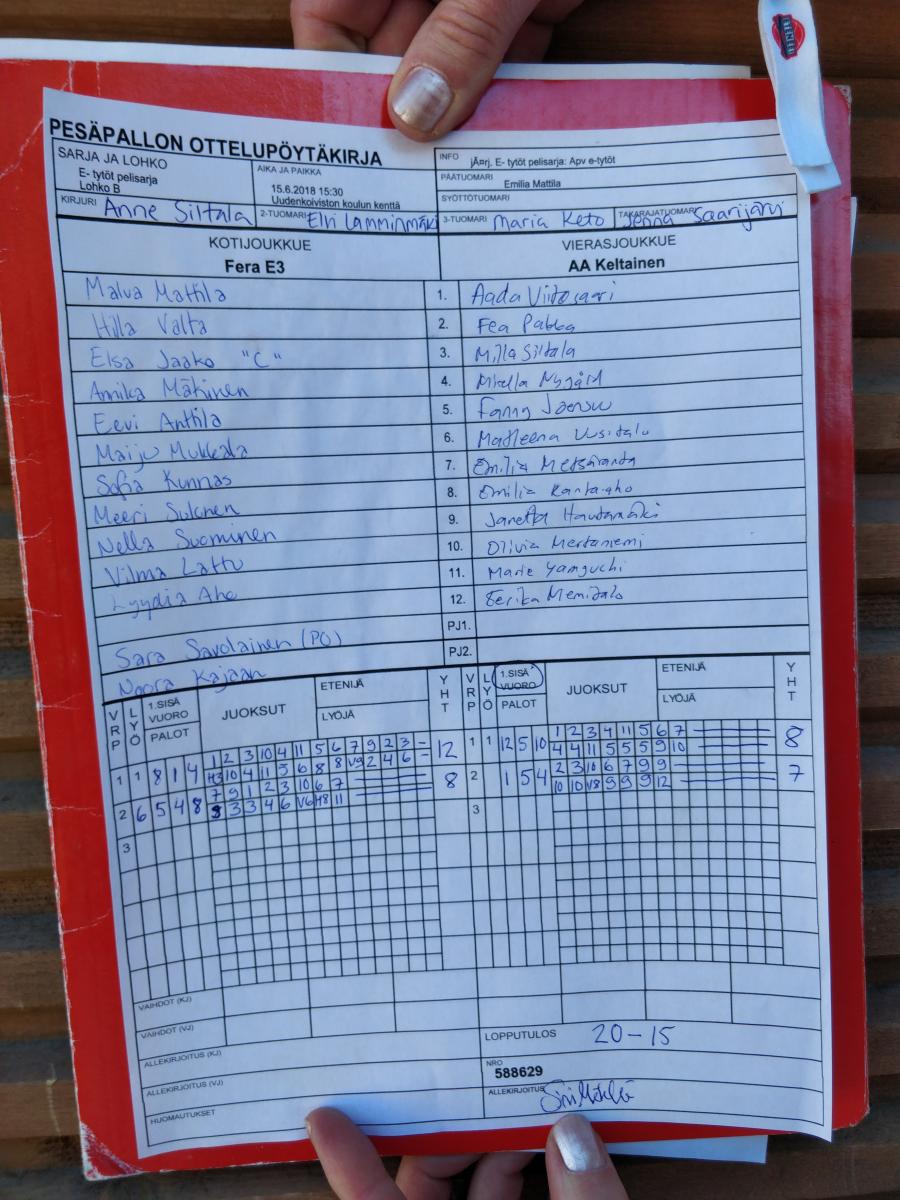 PESÄPALLON OTTELUPÖYTÄKIRJA
SARJA JA LOHKO
E- tytöt pelisarja
Lohko B
AIKA JA PAIKKA
15.6.2018 15:30
Uudenkoiviston koulun kenttä
INFO jÃ¤rj. E- tytöt pelisarja: Apv e-tytöt
PÄÄTUOMARI Emilia Mattila
SYÖTTÖTUOMARI
KIRJURI Anne Siltala 2-TUOMARI Elvi Lamminmäki 3-TUOMARI Maria Keto TAKARAJATUOMARI Jenna Saarijärvi
KOTIJOUKKUE VIERASJOUKKUE
Fera E3 AA Keltainen
Malva Mattila 1. Aada Viitasaari
Hilla Valta 2. Fea
Elsa Jaako "C" 3. Milla Siltala
Annika Mäkinen 4. Mirella Nygård
Eevi Anttila 5. Fanny
Maiju Mukkala 6. Matleena Uusitalo
Sofia Kunnas 7. Emilia Metsäranta
Meeri Sulonen 8. Emilia Kanta-aho
Nella Suominen 9. Janetta Hautamäki
Vilma Lattu 10. Olivia Mertaniemi
Lyydia Aho 11. Marie Yamguchi
12.
PJ1.
Sara Savolainen (PO) PJ2.
Noora Kajaan
VRP LYÖ 1.SISÄ VUORO PALOT JUOKSUT ETENIJÄ LYÖJÄ YHT VRP LYÖ 1.SISÄ VUORO PALOT JUOKSUT ETENIJÄ LYÖJÄ YHT
1 2 3 10 4 11 5 6 7 9 2 3 –
1 1 8 1 4 H3 10 4 11 5 6 8 8 V9 2 4 6 – 12
1 2 3 4 11 5 6 7
1 1 12 5 10 4 4 11 5 5 5 9 10 8
7 9 1 2 3 10 6 7
2 6 5 4 8 3 3 3 4 6 V6 H8 11 8
2 3 10 6 7 9 9
2 1 5 4 10 10 V8 9 9 9 12 7
3 3
VAIHDOT (KJ)
VAIHDOT (VJ)
LOPPUTULOS 20–15
ALLEKIRJOITUS (KJ)
NRO
588629
ALLEKIRJOITUS (VJ)
ALLEKIRJOITUS
HUOMAUTUKSET